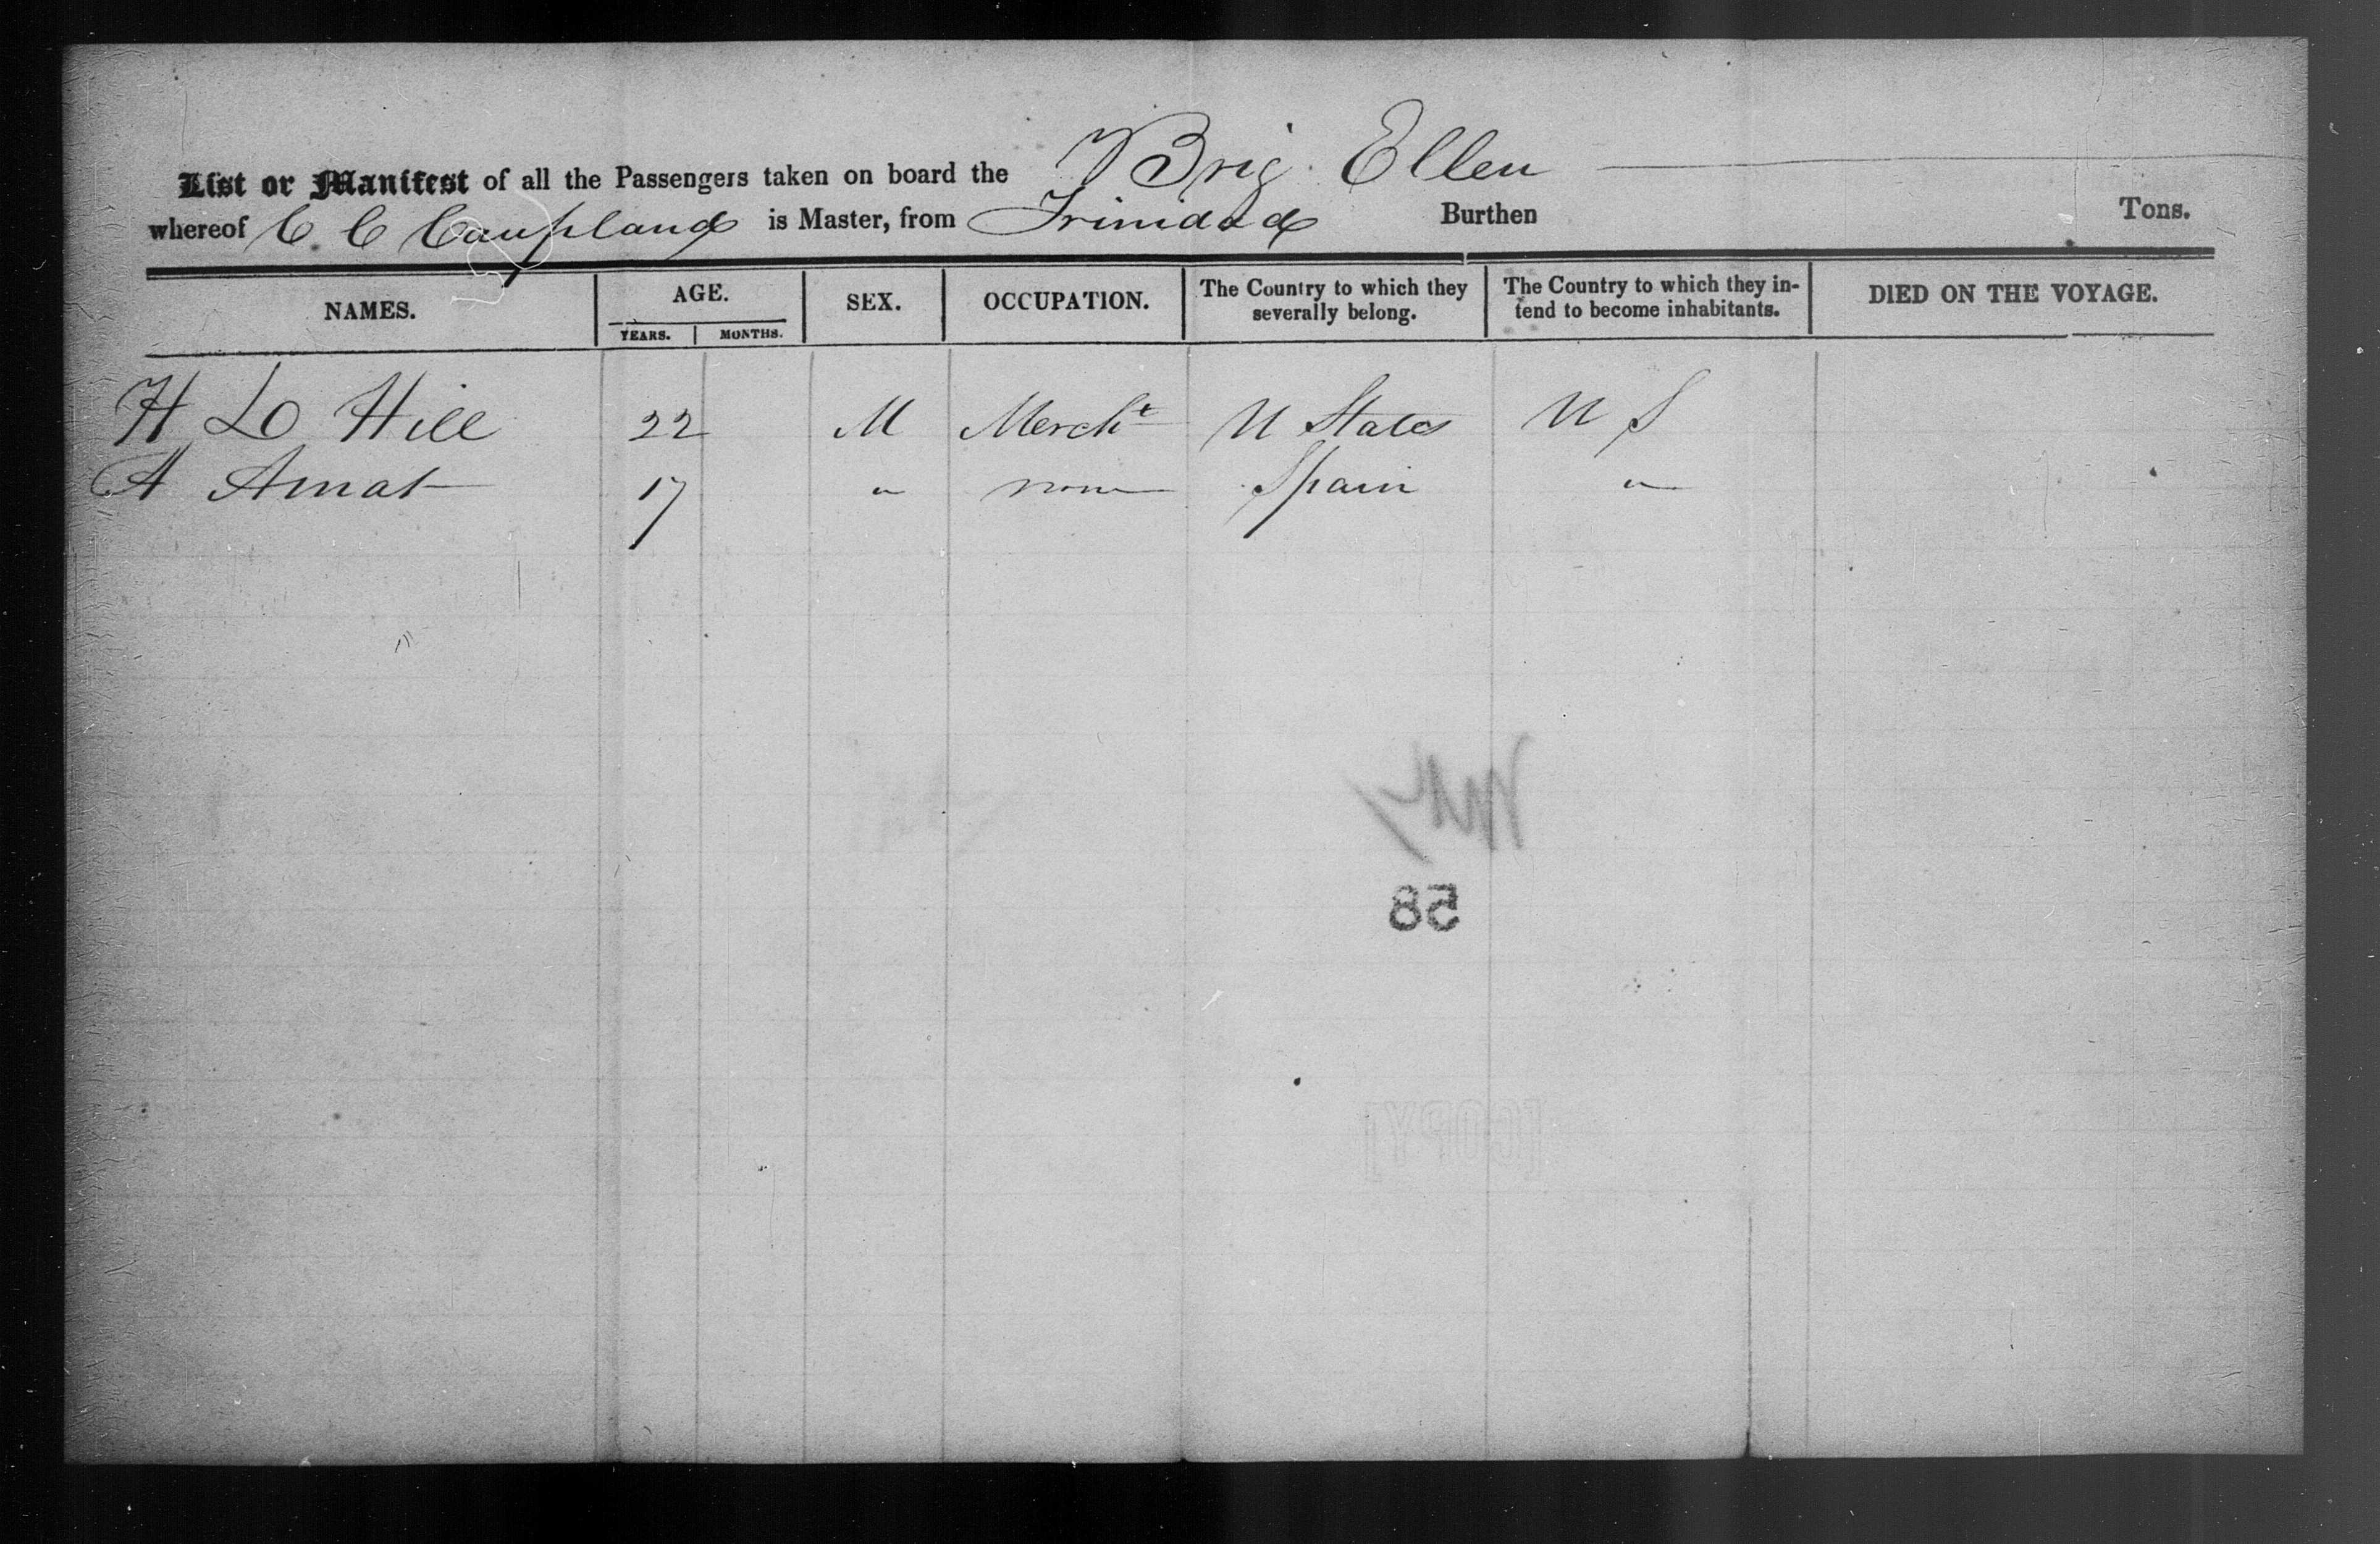 List or Manifest of all the Passengers taken on board the Brig Ellen
whereof C. C Caupland is Master, from Trinidad Burthen Tons.
NAMES. AGE. SEX. OCCUPATION. The Country to which they severally belong. The Country to which they intend to become inhabitants. DIED ON THE VOYAGE.
YEARS. MONTHS.
H LO Hill 22 M Mercht U States U S
A Amat 17 " none Spain "
58
[COPY]